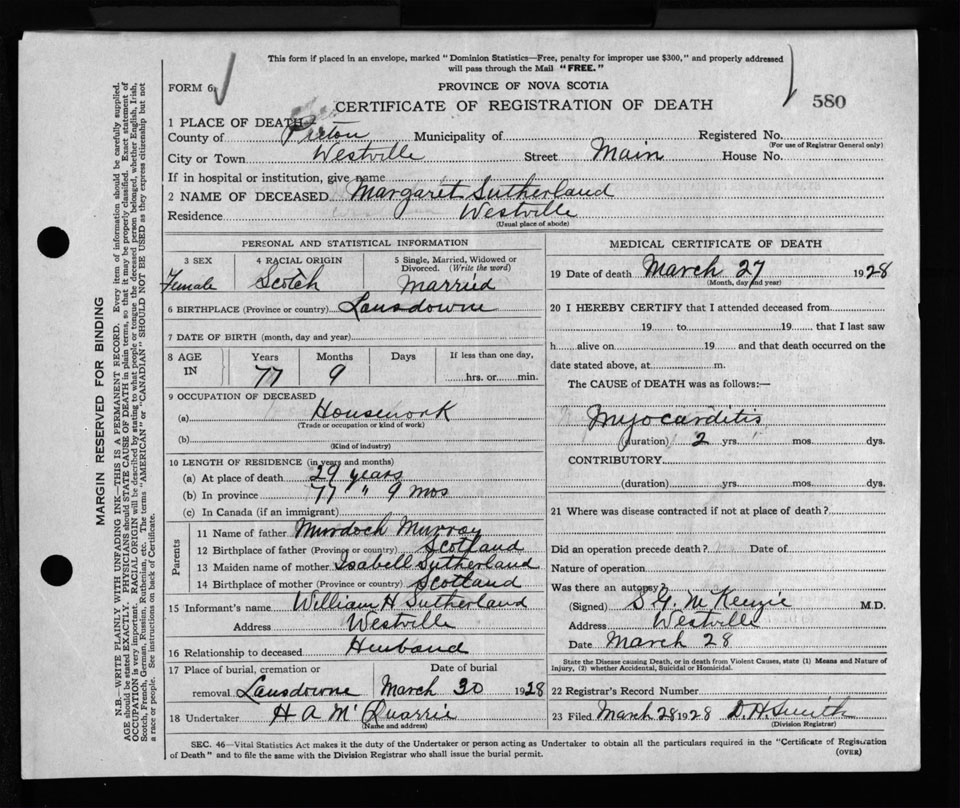 This form if placed in an envelope, marked "Dominion Statistics—Free, penalty for improper use $300," and properly addressed
will pass through the Mail "FREE."
FORM 6
PROVINCE OF NOVA SCOTIA
CERTIFICATE OF REGISTRATION OF DEATH
580
1 PLACE OF DEATH
County of Pictou Municipality of Registered No.
(For use of Registrar General only)
City or Town Westville Street Main House No.
If in hospital or institution, give name
2 NAME OF DECEASED Margaret Sutherland
Residence Westville
(Usual place of abode)
PERSONAL AND STATISTICAL INFORMATION
3 SEX 4 RACIAL ORIGIN 5 Single, Married, Widowed or
Divorced. (Write the word)
Female Scotch Married
6 BIRTHPLACE (Province or country) Lansdowne
7 DATE OF BIRTH (month, day and year)
8 AGE IN Years Months Days If less than one day,
77 9 hrs. or min.
9 OCCUPATION OF DECEASED
(a) Housework
(Trade or occupation or kind of work)
(b)
(Kind of industry)
10 LENGTH OF RESIDENCE (in years and months)
(a) At place of death 29 years
(b) In province 77 " 9 mos
(c) In Canada (if an immigrant)
Parents
11 Name of father Murdoch Murray
12 Birthplace of father (Province or country) Scotland
13 Maiden name of mother Isabell Sutherland
14 Birthplace of mother (Province or country) Scotland
15 Informant's name William H Sutherland
Address Westville
16 Relationship to deceased Husband
17 Place of burial, cremation or Date of burial
removal Lansdowne March 30 1928
18 Undertaker H A McQuarrie
(Name and address)
MEDICAL CERTIFICATE OF DEATH
19 Date of death March 27 1928
(Month, day and year)
20 I HEREBY CERTIFY that I attended deceased from
19 to 19 that I last saw
h alive on 19 and that death occurred on the
date stated above, at m.
The CAUSE of DEATH was as follows:—
Myocarditis
(duration) 2 yrs. mos. dys.
CONTRIBUTORY
(duration) yrs. mos. dys.
21 Where was disease contracted if not at place of death?
Did an operation precede death? Date of
Nature of operation
Was there an autopsy?
(Signed) S G. McKenzie M.D.
Address Westville
Date March 28
State the Disease causing Death, or in death from Violent Causes, state (1) Means and Nature of
Injury, (2) whether Accidental, Suicidal or Homicidal.
22 Registrar's Record Number
23 Filed March 28 1928 D. H. Smith
(Division Registrar)
SEC. 46—Vital Statistics Act makes it the duty of the Undertaker or person acting as Undertaker to obtain all the particulars required in the "Certificate of Registration
of Death" and to file the same with the Division Registrar who shall issue the burial permit. (OVER)
MARGIN RESERVED FOR BINDING
N.B.—WRITE PLAINLY WITH UNFADING INK—THIS IS A PERMANENT RECORD. Every item of information should be carefully supplied.
AGE should be stated EXACTLY. PHYSICIANS should STATE CAUSE OF DEATH in plain terms, so that it may be properly classified. Exact statement of
OCCUPATION is very important. RACIAL ORIGIN will be described by stating to what people or tongue the deceased person belonged, whether English, Irish,
Scotch, French, German, Russian, Ruthenian, etc. The terms "AMERICAN" or "CANADIAN" SHOULD NOT BE USED as they express citizenship but not
a race or people. See instructions on back of Certificate.